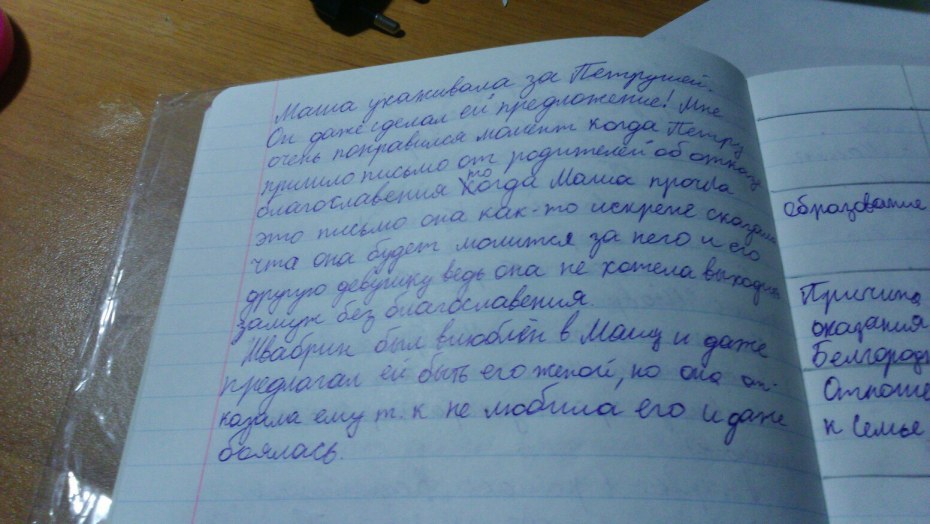 Маша ухаживала за Петрушей.
Он даже сделал ей предложение! Мне
очень понравился момент когда Петру
пришло письмо от родителей об отказе
благославения то Когда Маша прочла
это письмо она как-то искрене сказала
что она будет молится за него и его
другую девушку ведь она не хотела выходить
замуж без благославения.
Швабрин был влюблён в Машу и даже
предлагал ей быть его женой, но она от-
казала ему т.к не любила его и даже
боялась.
образование
Причина
оказания
Белгород
Отноше
к семье